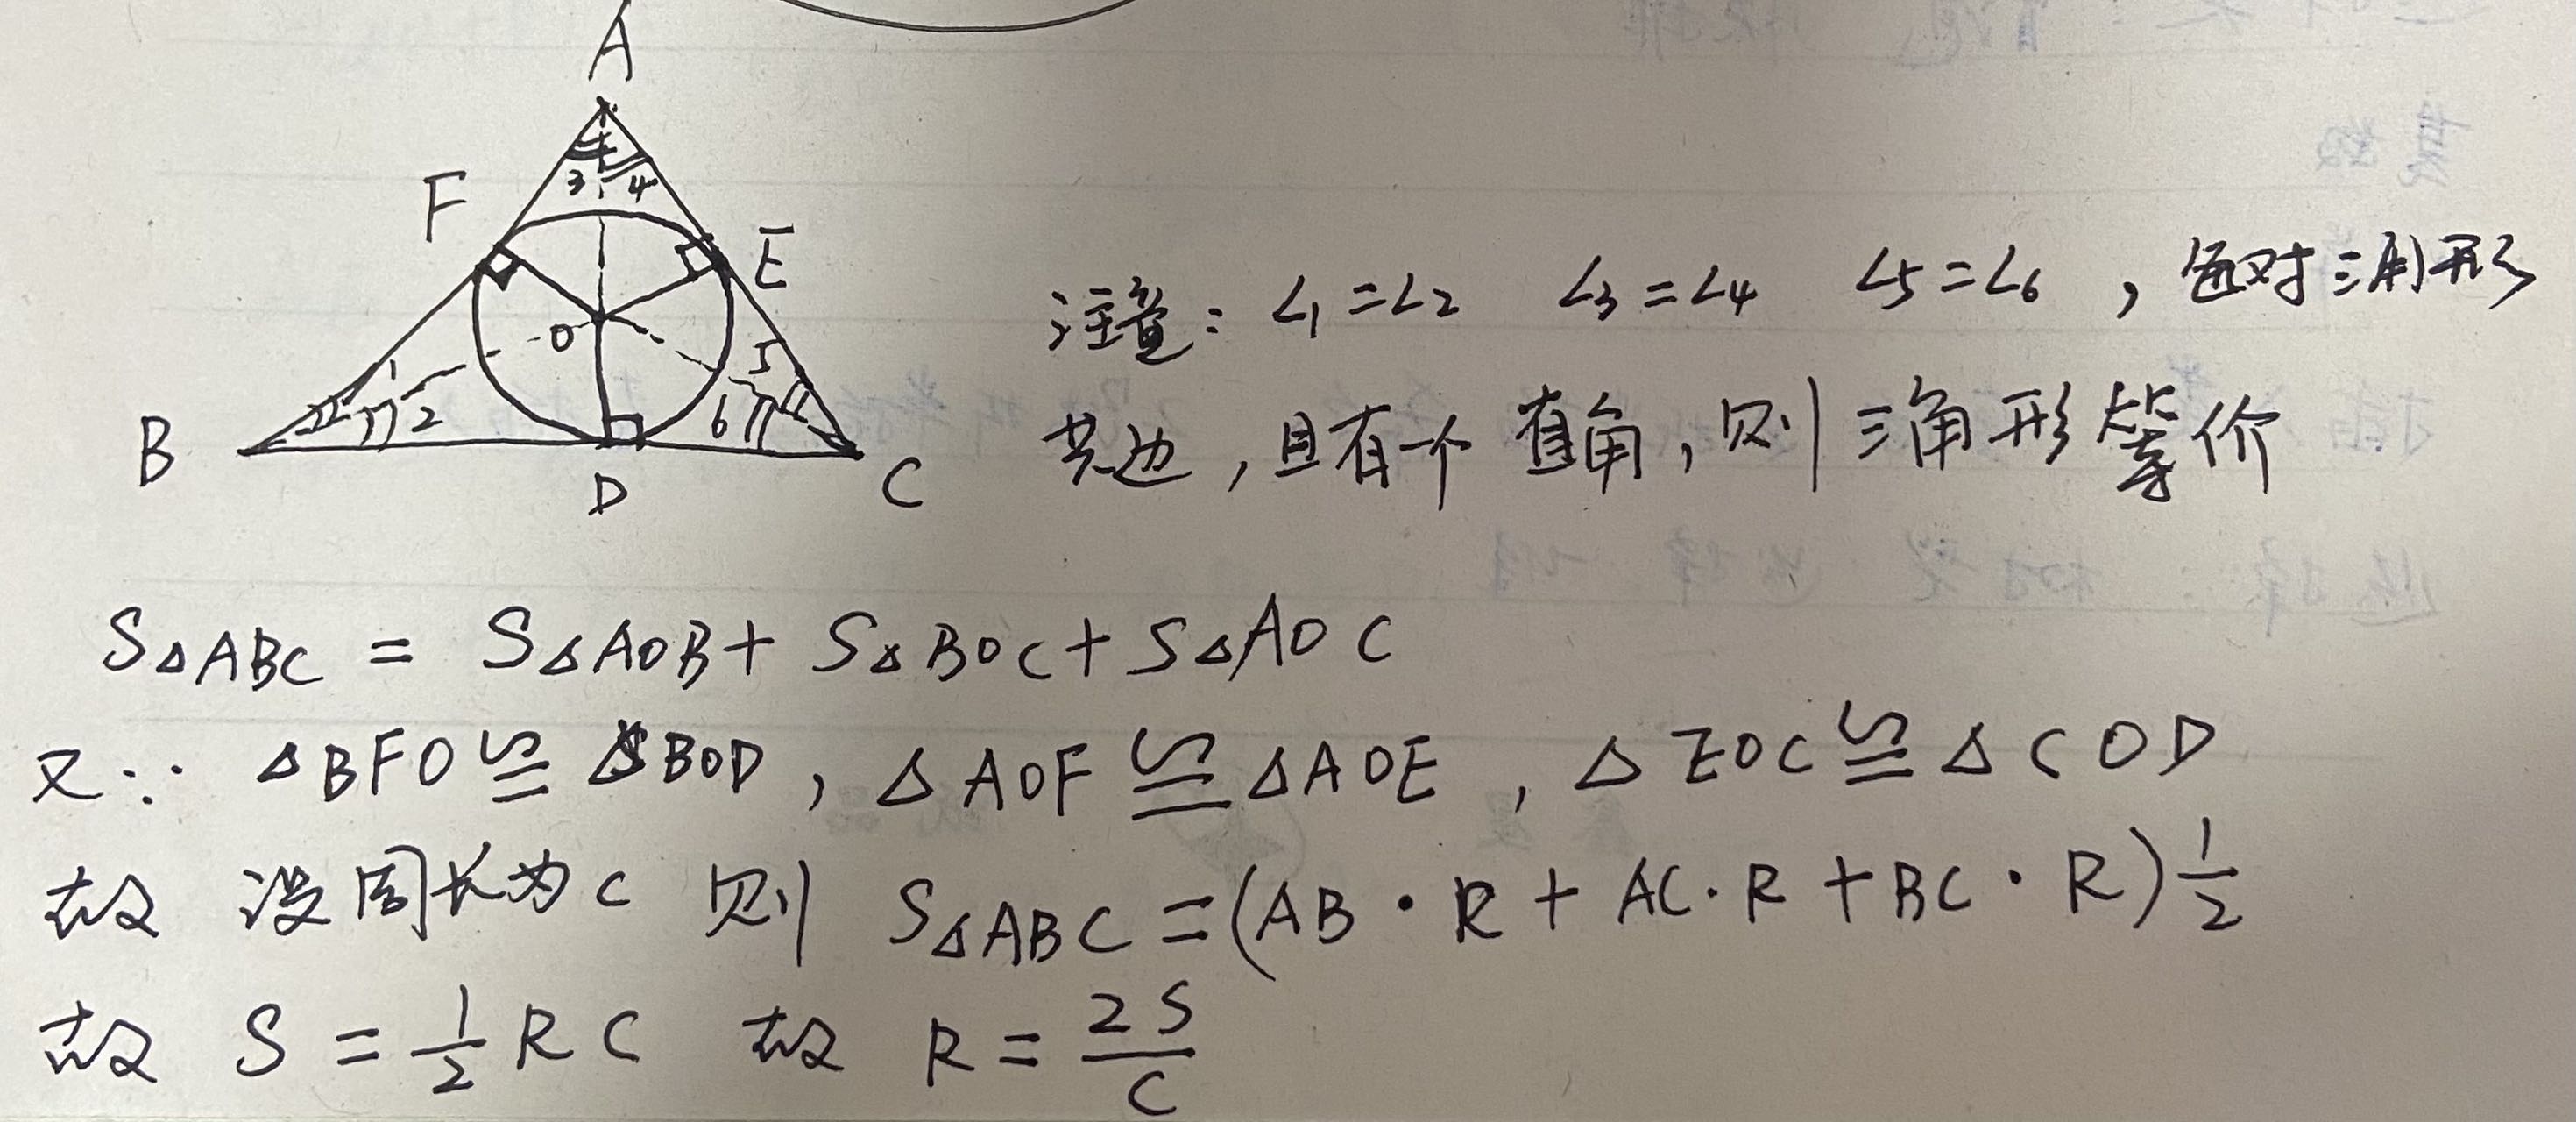 A
3 4
F
E
O
1
2
5
6
B
D
C
注意：∠1=∠2 ∠3=∠4 ∠5=∠6，每对三角形
共边，且有一个直角，则三角形等价
S△ABC = S△AOB + S△BOC + S△AOC
又∵ △BFO≌△BOD，△AOF≌△AOE，△EOC≌△COD
故 设周长为C 则 S△ABC=(AB·R+AC·R+BC·R)1/2
故 S=1/2RC 故 R=2S/C